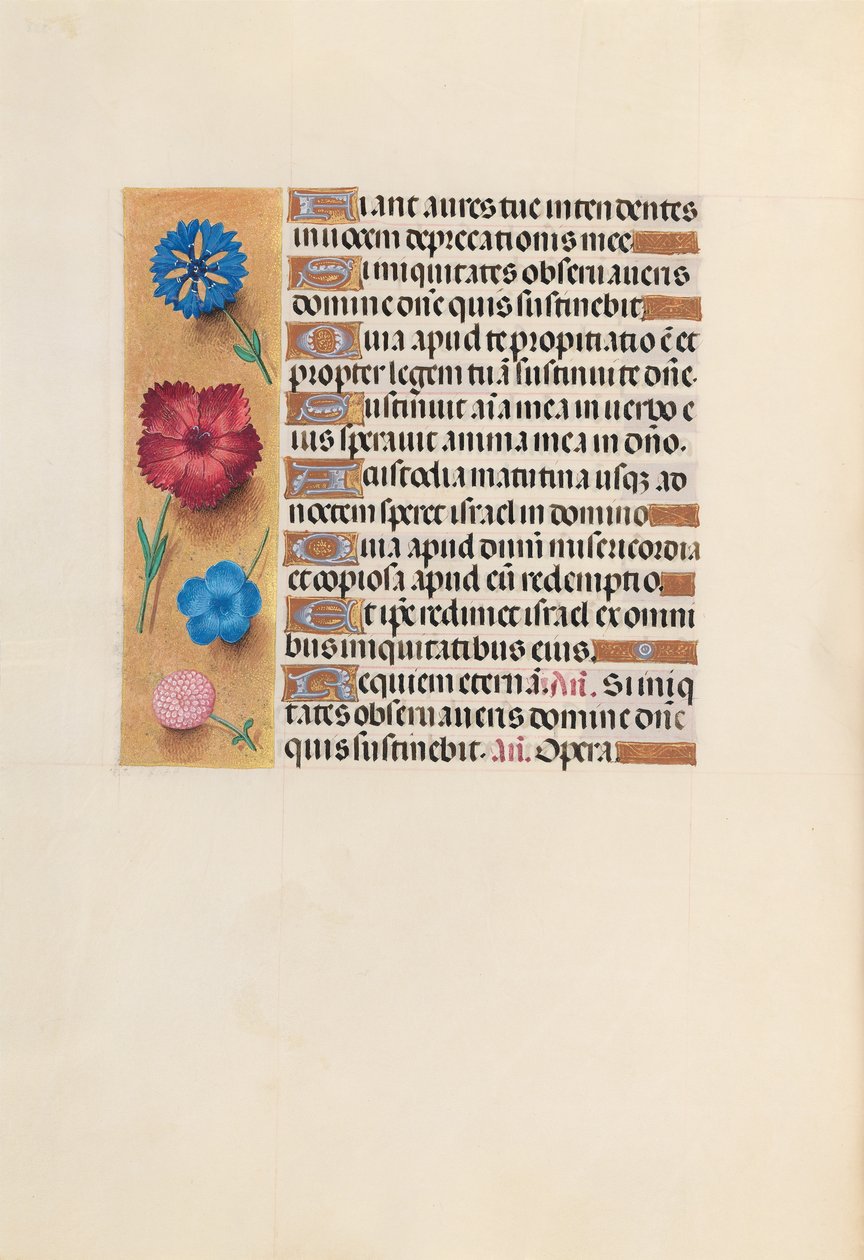 Fiant aures tue intendentes
in uocem deprecationis mee
Si iniquitates obseruaueris
domine dñe quis sustinebit.
Quia apud te propitiatio ē et
propter legem tuā sustinui te dñe.
Sustinuit aīa mea in uerbo e
ius sperauit anima mea in dño.
A custodia matutina usqꝫ ad
noctem speret israel in domino
Quia apud dnm̄ misericordia
et copiosa apud eū redemptio.
Et ip̄e redimet israel ex omni
bus iniquitatibus eius.
Requiem eternā. Añ. Si iniq
tates obseruaueris domine dñe
quis sustinebit. Añ. Opera.